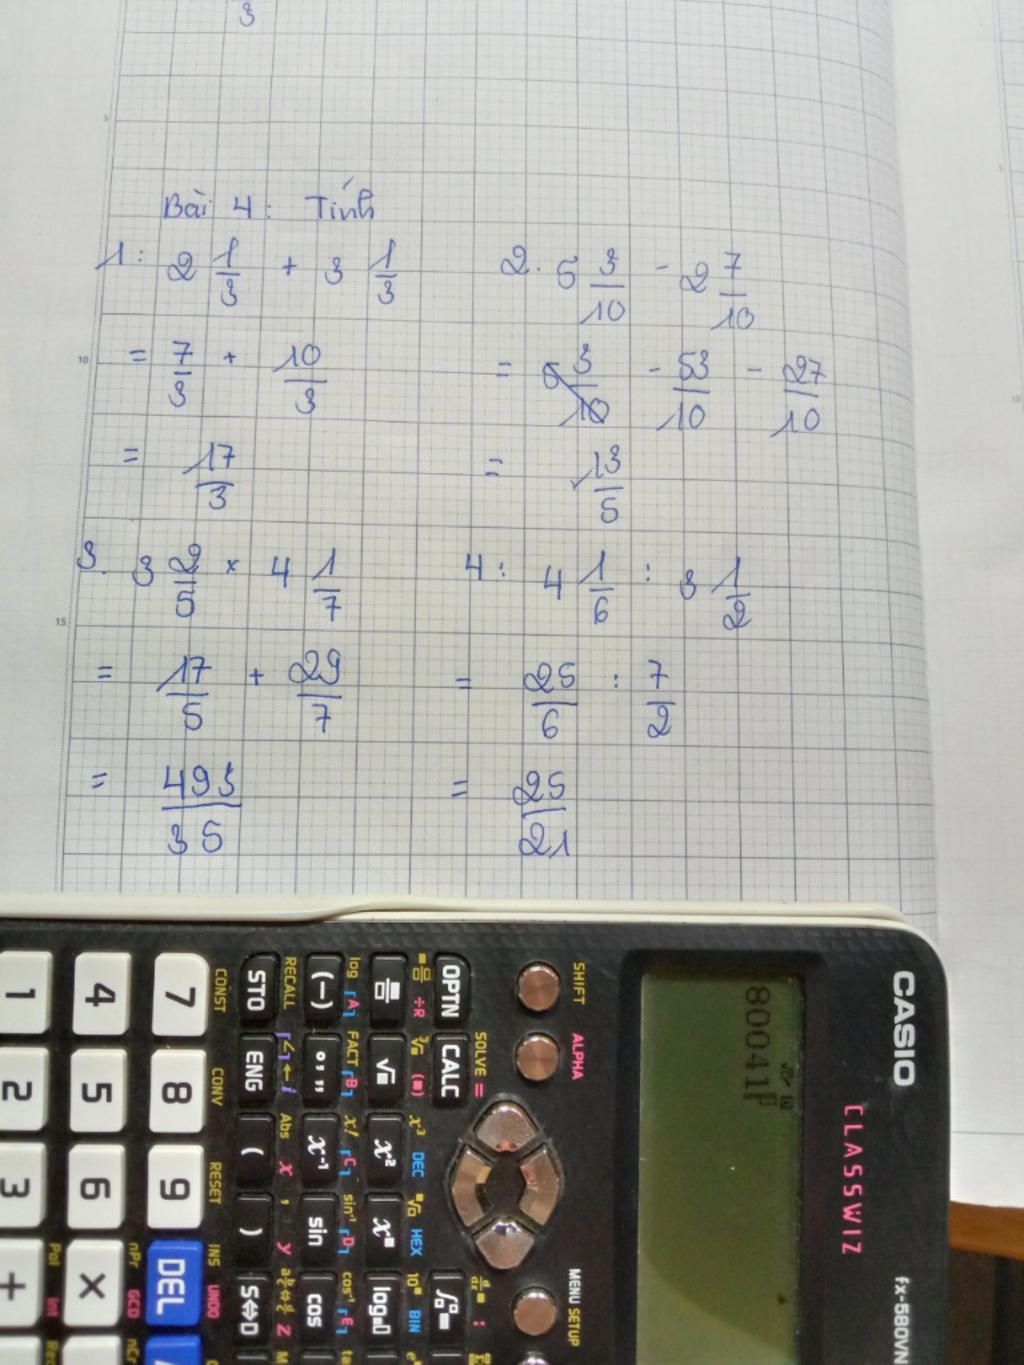 3
5
Bài 4: Tính
1: 2 1/3 + 3 1/3
2. 5 3/10 - 2 7/10
10
= 7/3 + 10/3
= 5 3/10 - 53/10 - 27/10
10
= 17/3
= 13/5
3. 3 2/5 × 4 1/7
4: 4 1/6 : 3 1/2
15
= 17/5 + 29/7
= 25/6 : 7/2
= 493/35
= 25/21
CASIO
CLASSWIZ
fx-580VN
80041
SHIFT ALPHA MENU SETUP
SOLVE =
OPTN CALC
÷R DEC HEX BIN
x² log
log FACT x! sin⁻¹ cos⁻¹
A B C D E
(−) °’” x⁻¹ sin cos
RECALL Abs x , y z
STO ENG ( ) S⇔D
CONST CONV RESET INS UNDO
7 8 9 DEL
nPr GCD
4 5 6 ×
Pol Int
1 2 3 +